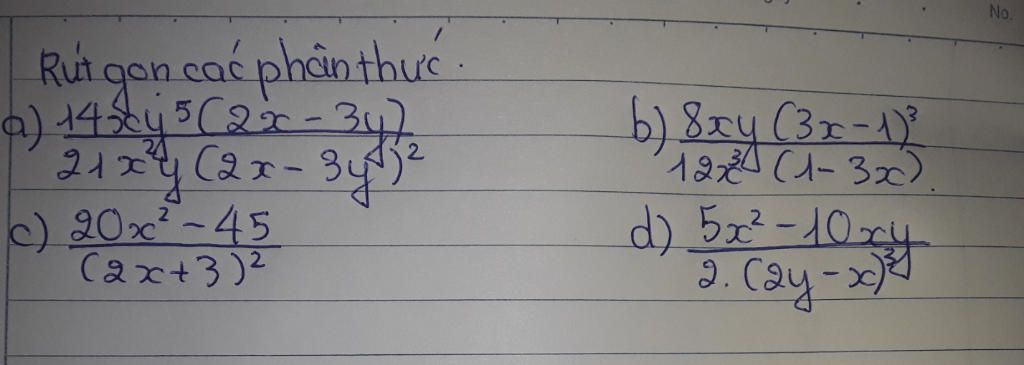 No.
Rút gọn các phân thức.
a) \frac{14xy^5(2x-3y)}{21x^2y(2x-3y)^2} b) \frac{8xy(3x-1)^3}{12x^3(1-3x)}.
c) \frac{20x^2-45}{(2x+3)^2} d) \frac{5x^2-10xy}{2.(2y-x)^3}